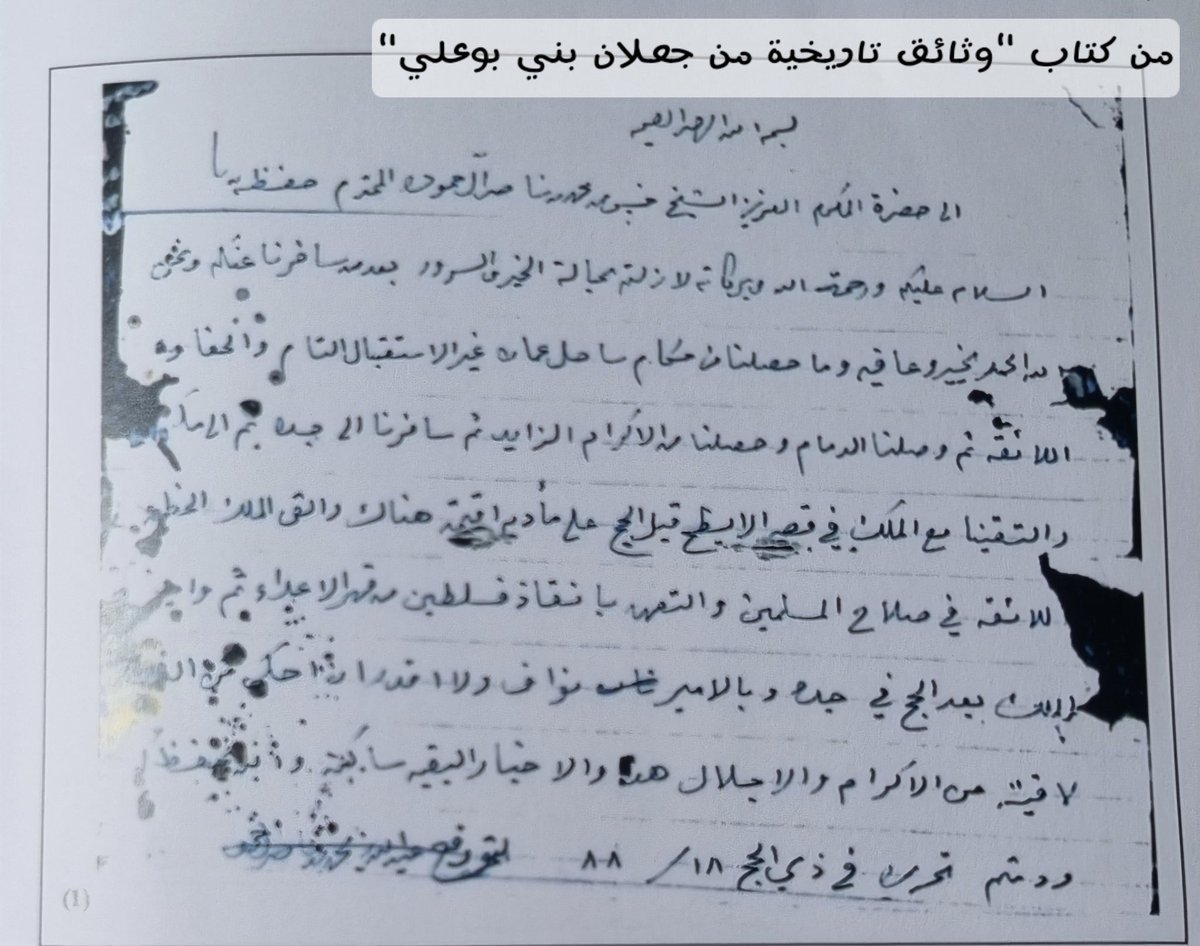 من كتاب "وثائق تاريخية من جعلان بني بوعلي"
بسم الله الرحمن الرحيم
الى حضرة المكرم العزيز الشيخ المحترم حفظه
السلام عليكم ورحمة الله وبركاته لا زلتم بحالة الخير والسرور بعده سافرنا عنكم ونحن
لله الحمد بخير وعافيه وما حصلنا من حكام ساحل عمان غير الاستقبال التام والحفاوه
اللائقه ثم وصلنا الدمام وحصلنا من الاكرام الزايد ثم سافرنا الى جده ثم الى
والتقينا مع الملك في قصر الابطح قبل الحج على مأدبه اقيمة هناك والقى الملك
للائقه في صلاح المسلمين والتعهد بانقاذ فلسطين من قهر الاعداء ثم
الملك بعد الحج في جده وبالامير نواف ولا اقدر ان احكي
لاقيت من الاكرام والاجلال هذا والاخبار البقيه ساكنه
ودمتم تحرر في ذي الحج ١٨ / ٨٨
(1)